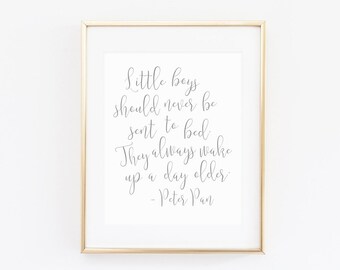 Little boys
should never be
sent to bed
They always wake
up a day older
- Peter Pan